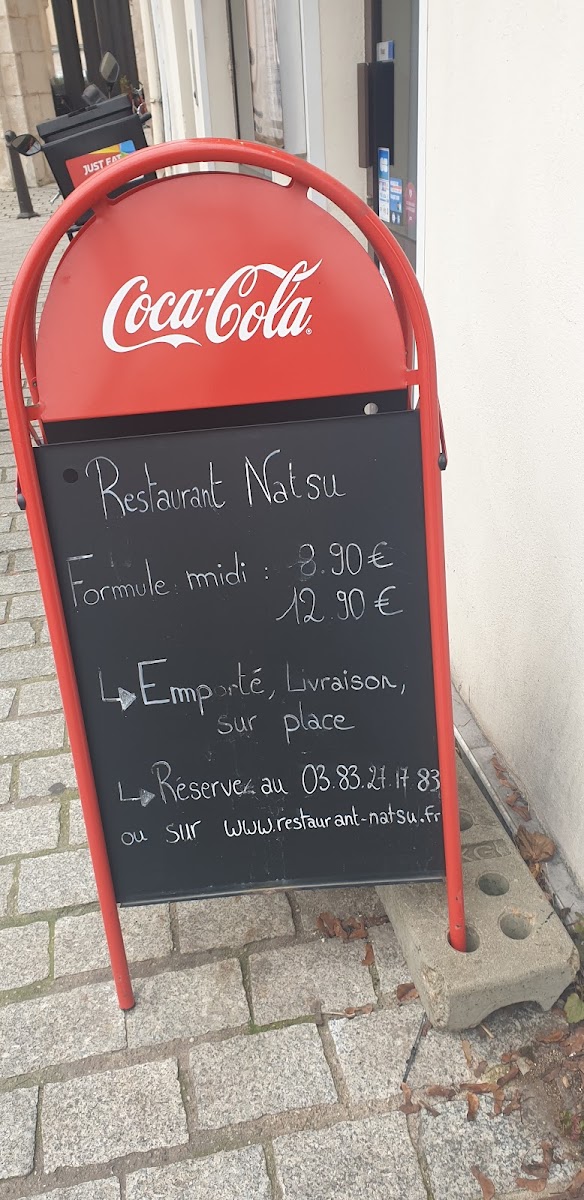 JUST EAT
Coca-Cola
Restaurant Natsu
Formule midi : 8.90€
12.90€
Emporté, Livraison,
sur place
Réservez au 03.83.27.17.83
ou sur www.restaurant-natsu.fr